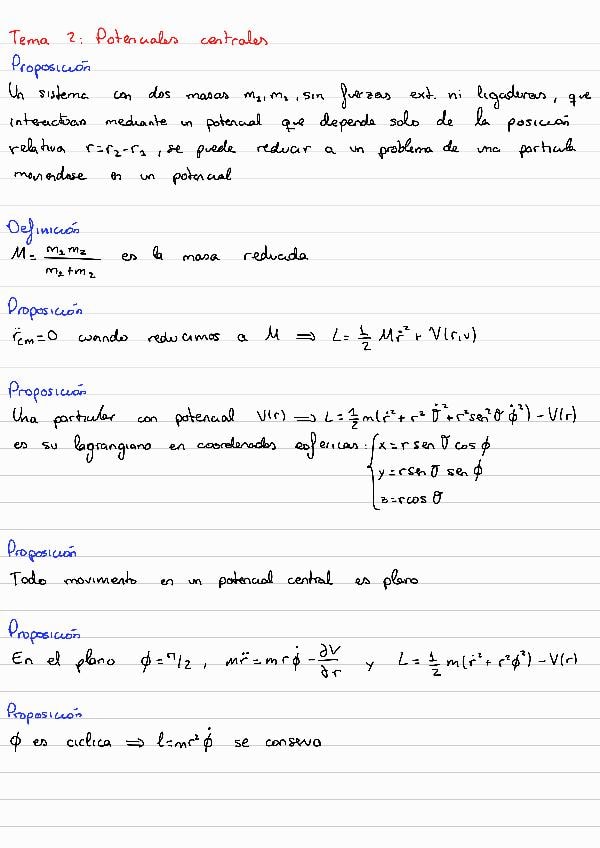 Tema 2: Potenciales centrales
Proposición
Un sistema con dos masas m₁, m₂, sin fuerzas ext. ni ligaduras, que
interactúan mediante un potencial que depende solo de la posición
relativa r=r₂-r₁, se puede reducir a un problema de una partícula
moviendose en un potencial
Definición
M = m₁m₂/(m₁+m₂) es la masa reducida
Proposición
r̈cm=0 cuando reducimos a M ⟹ L = 1/2 Mṙ² + V(r,v)
Proposición
Una particular con potencial V(r) ⟹ L = 1/2 m(ṙ² + r² θ̇² + r²sen²θ φ̇²) - V(r)
es su lagrangiano en coordenadas esféricas: { x=r sen θ cos φ
y=r sen θ sen φ
z=r cos θ
Proposición
Todo movimiento en un potencial central es plano
Proposición
En el plano φ=π/2, mr̈=mrφ̇ - ∂V/∂r y L = 1/2 m(ṙ² + r²φ̇²) - V(r)
Proposición
φ es cíclica ⟹ l=mr²φ̇ se conserva